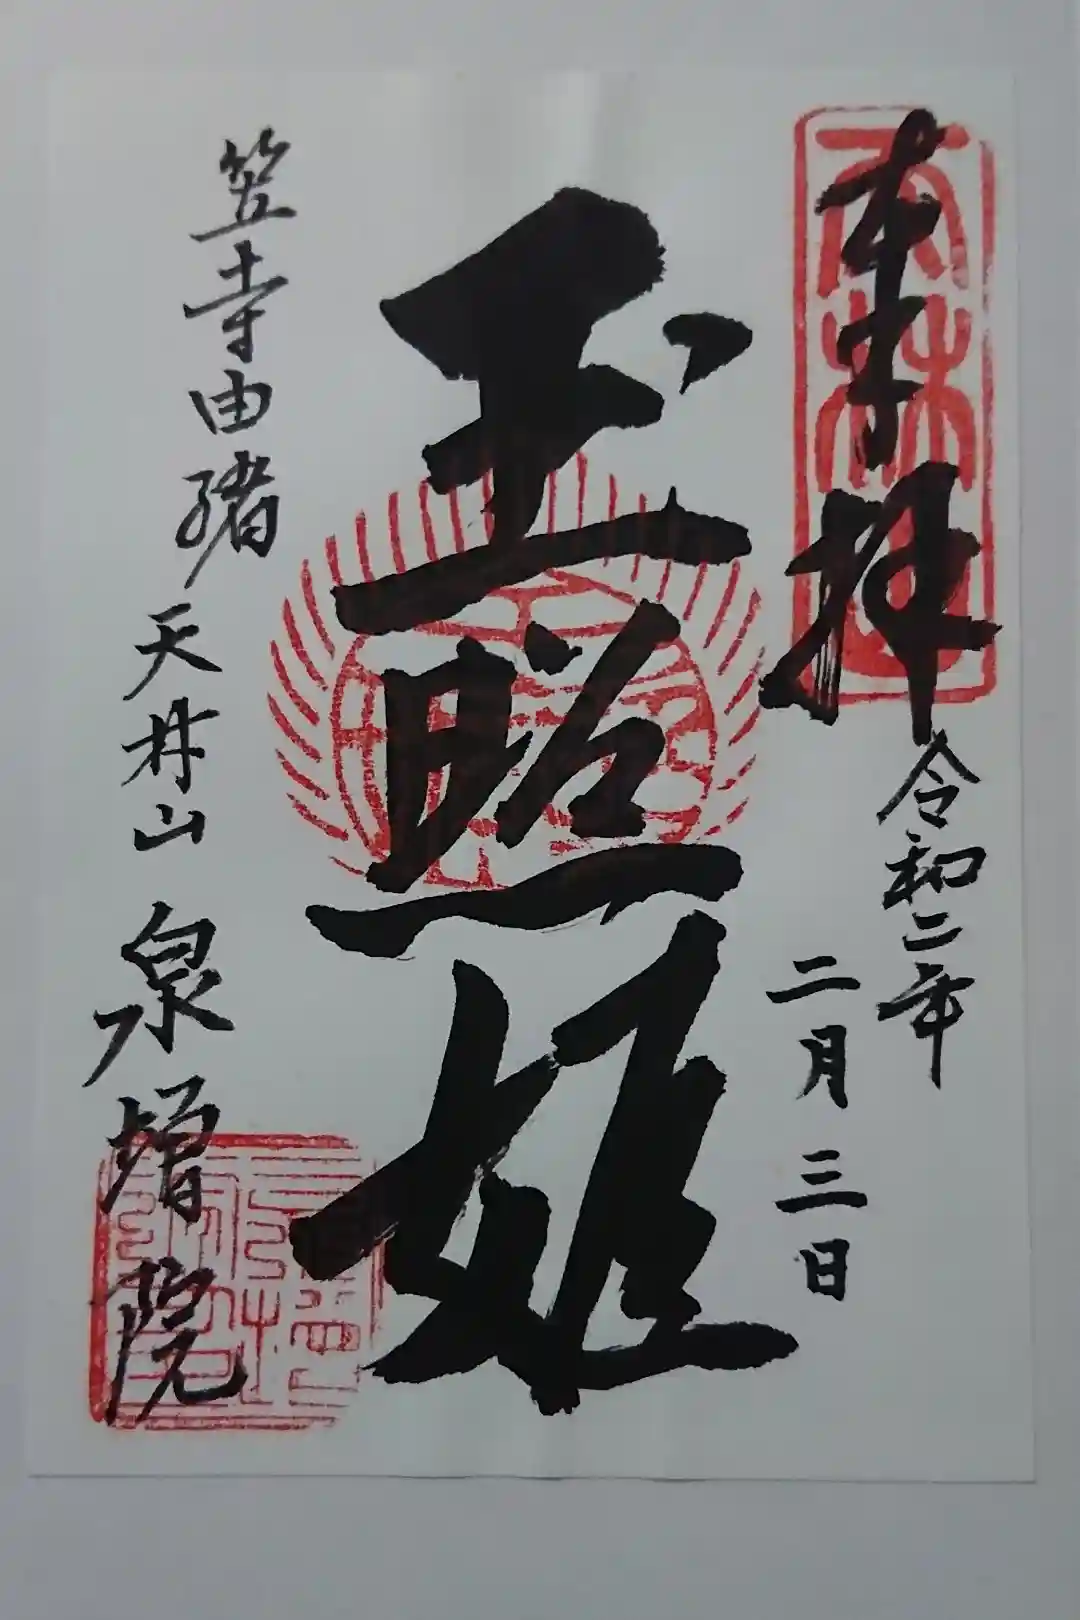 奉拝
令和二年
二月三日
玉照姫
笠寺由緒
天林山
泉増院